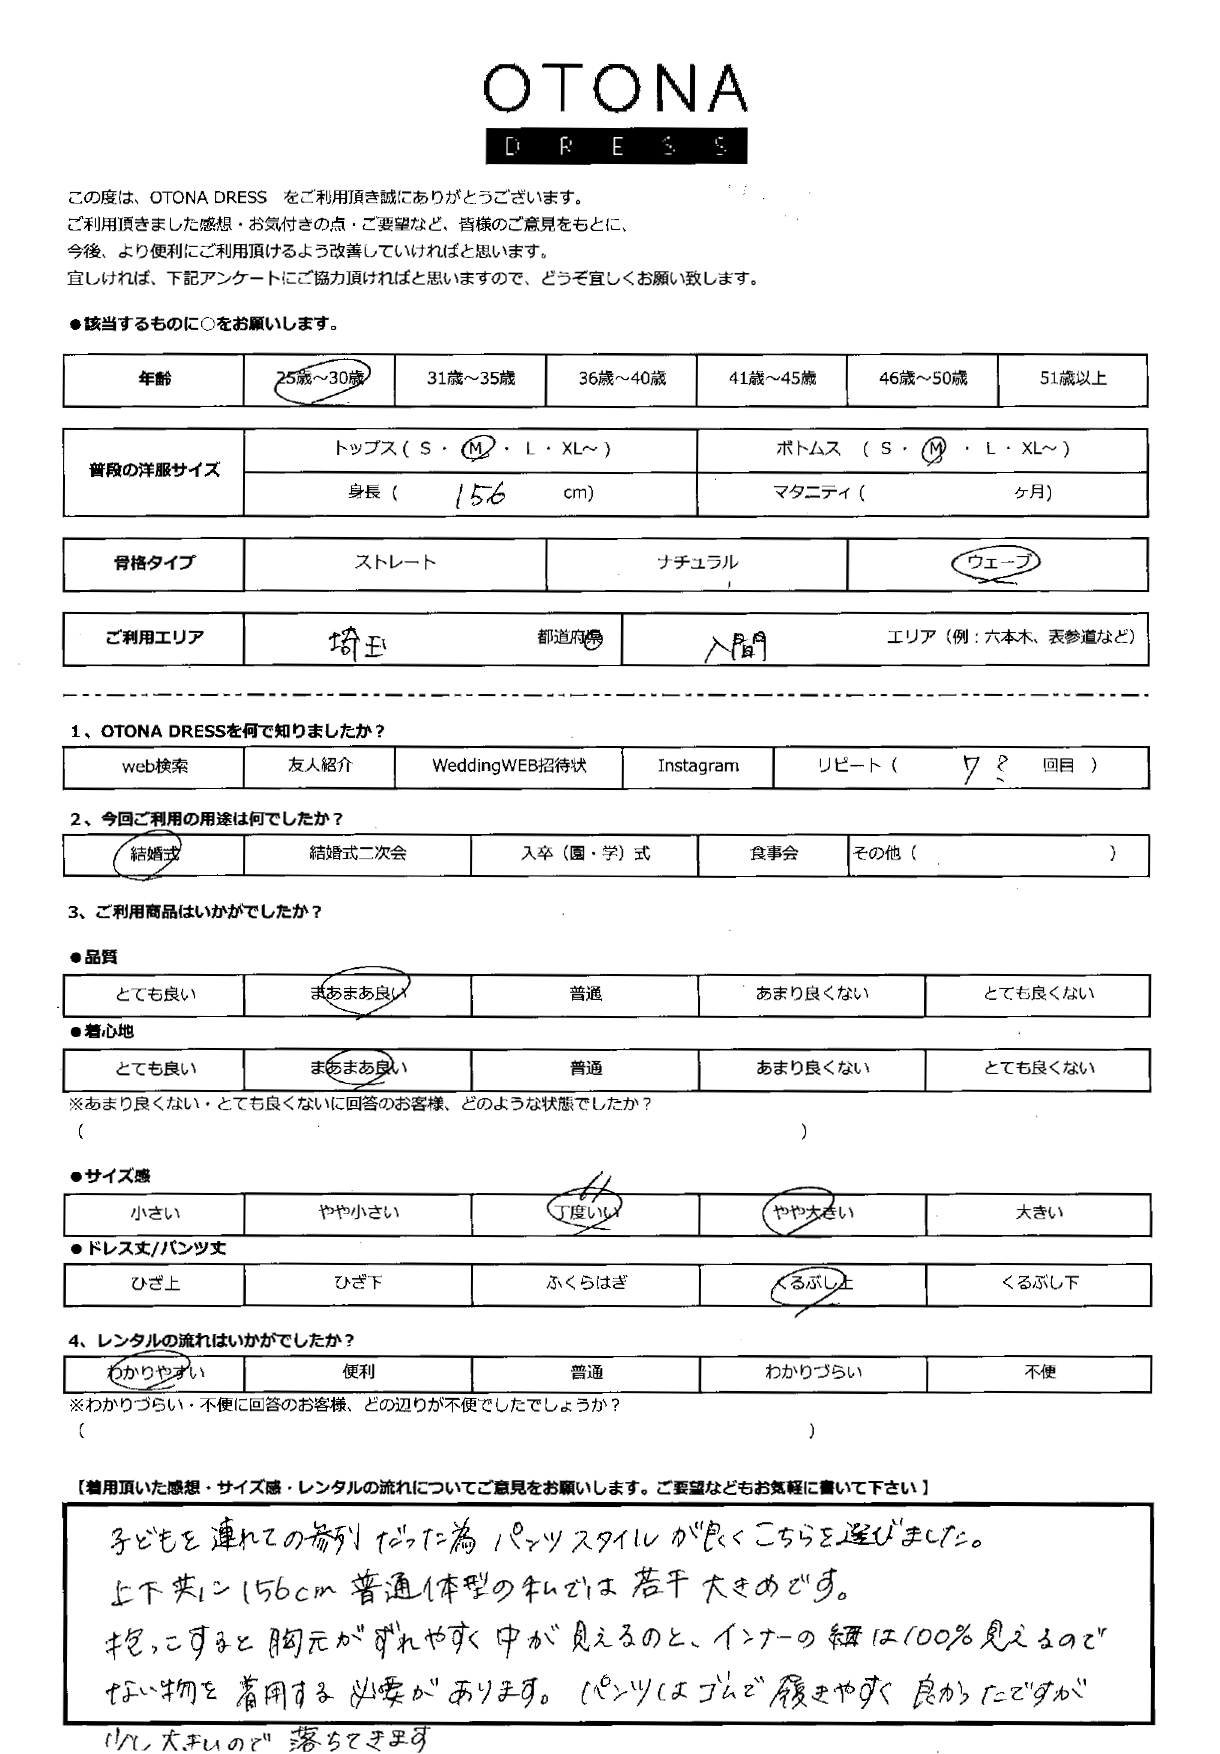 OTONA
DRESS
この度は、OTONA DRESS をご利用頂き誠にありがとうございます。
ご利用頂きました感想・お気付きの点・ご要望など、皆様のご意見をもとに、
今後、より便利にご利用頂けるよう改善していければと思います。
宜しければ、下記アンケートにご協力頂ければと思いますので、どうぞ宜しくお願い致します。
●該当するものに○をお願いします。
年齢 25歳～30歳 31歳～35歳 36歳～40歳 41歳～45歳 46歳～50歳 51歳以上
普段の洋服サイズ トップス( S ・ M ・ L ・ XL～ ) ボトムス ( S ・ M ・ L ・ XL～ )
身長 ( 156 cm) マタニティ ( ヶ月)
骨格タイプ ストレート ナチュラル ウェーブ
ご利用エリア 埼玉 都道府県 入間 エリア（例：六本木、表参道など）
1、OTONA DRESSを何で知りましたか？
web検索 友人紹介 WeddingWEB招待状 Instagram リピート ( 7? 回目 )
2、今回ご利用の用途は何でしたか？
結婚式 結婚式二次会 入卒（園・学）式 食事会 その他 ( )
3、ご利用商品はいかがでしたか？
●品質
とても良い まあまあ良い 普通 あまり良くない とても良くない
●着心地
とても良い まあまあ良い 普通 あまり良くない とても良くない
※あまり良くない・とても良くないに回答のお客様、どのような状態でしたか？
( )
●サイズ感
小さい やや小さい 丁度いい やや大きい 大きい
●ドレス丈/パンツ丈
ひざ上 ひざ下 ふくらはぎ くるぶし上 くるぶし下
4、レンタルの流れはいかがでしたか？
わかりやすい 便利 普通 わかりづらい 不便
※わかりづらい・不便に回答のお客様、どの辺りが不便でしたでしょうか？
( )
【着用頂いた感想・サイズ感・レンタルの流れについてご意見をお願いします。ご要望などもお気軽に書いて下さい】
子どもを連れての参列だった為パンツスタイルが良くこちらを選びました。
上下共に156cm普通体型の私では若干大きめです。
抱っこすると胸元がずれやすく中が見えるのと、インナーの紐は100%見えるので
ない物を着用する必要があります。パンツはゴムで履きやすく良かったですが
少し大きいので落ちてきます